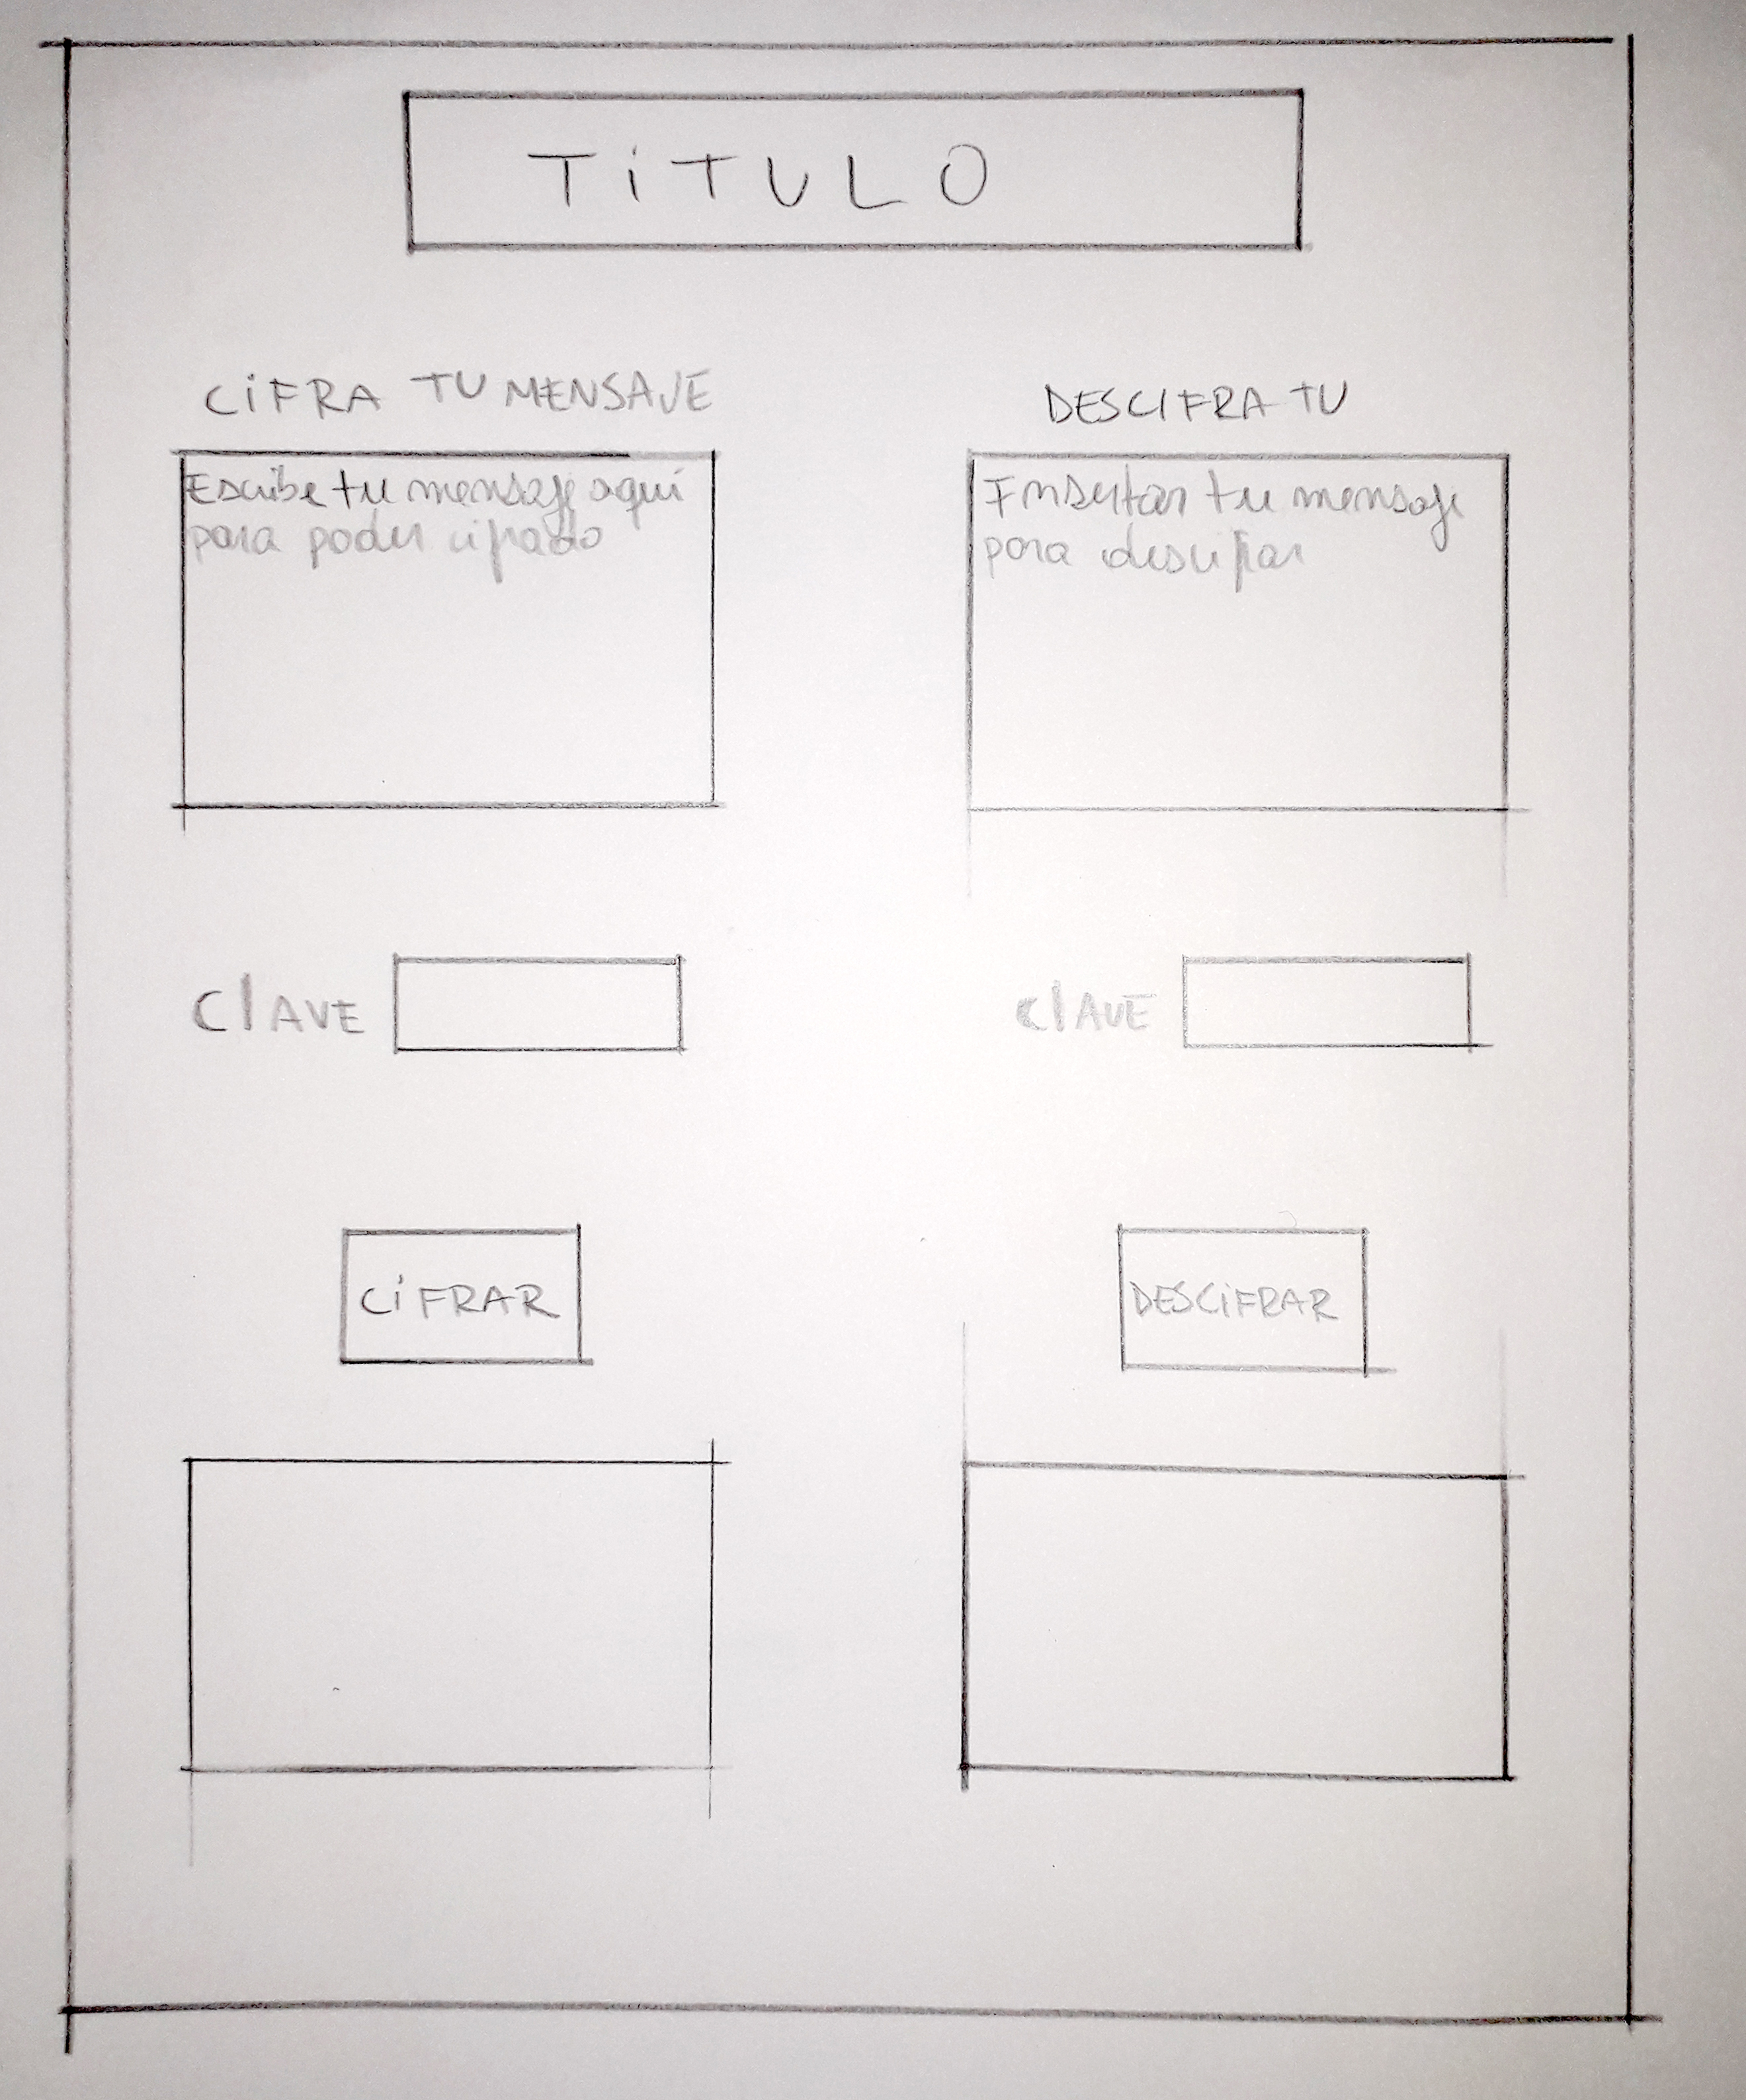 TiTULO
CiFRA TU MENSAJE
Escribe tu mensaje aqui
para poder cifrado
CLAVE
CiFRAR
DESCIFRA TU
Insertar tu mensaje
para descifrar
CLAVE
DESCiFRAR